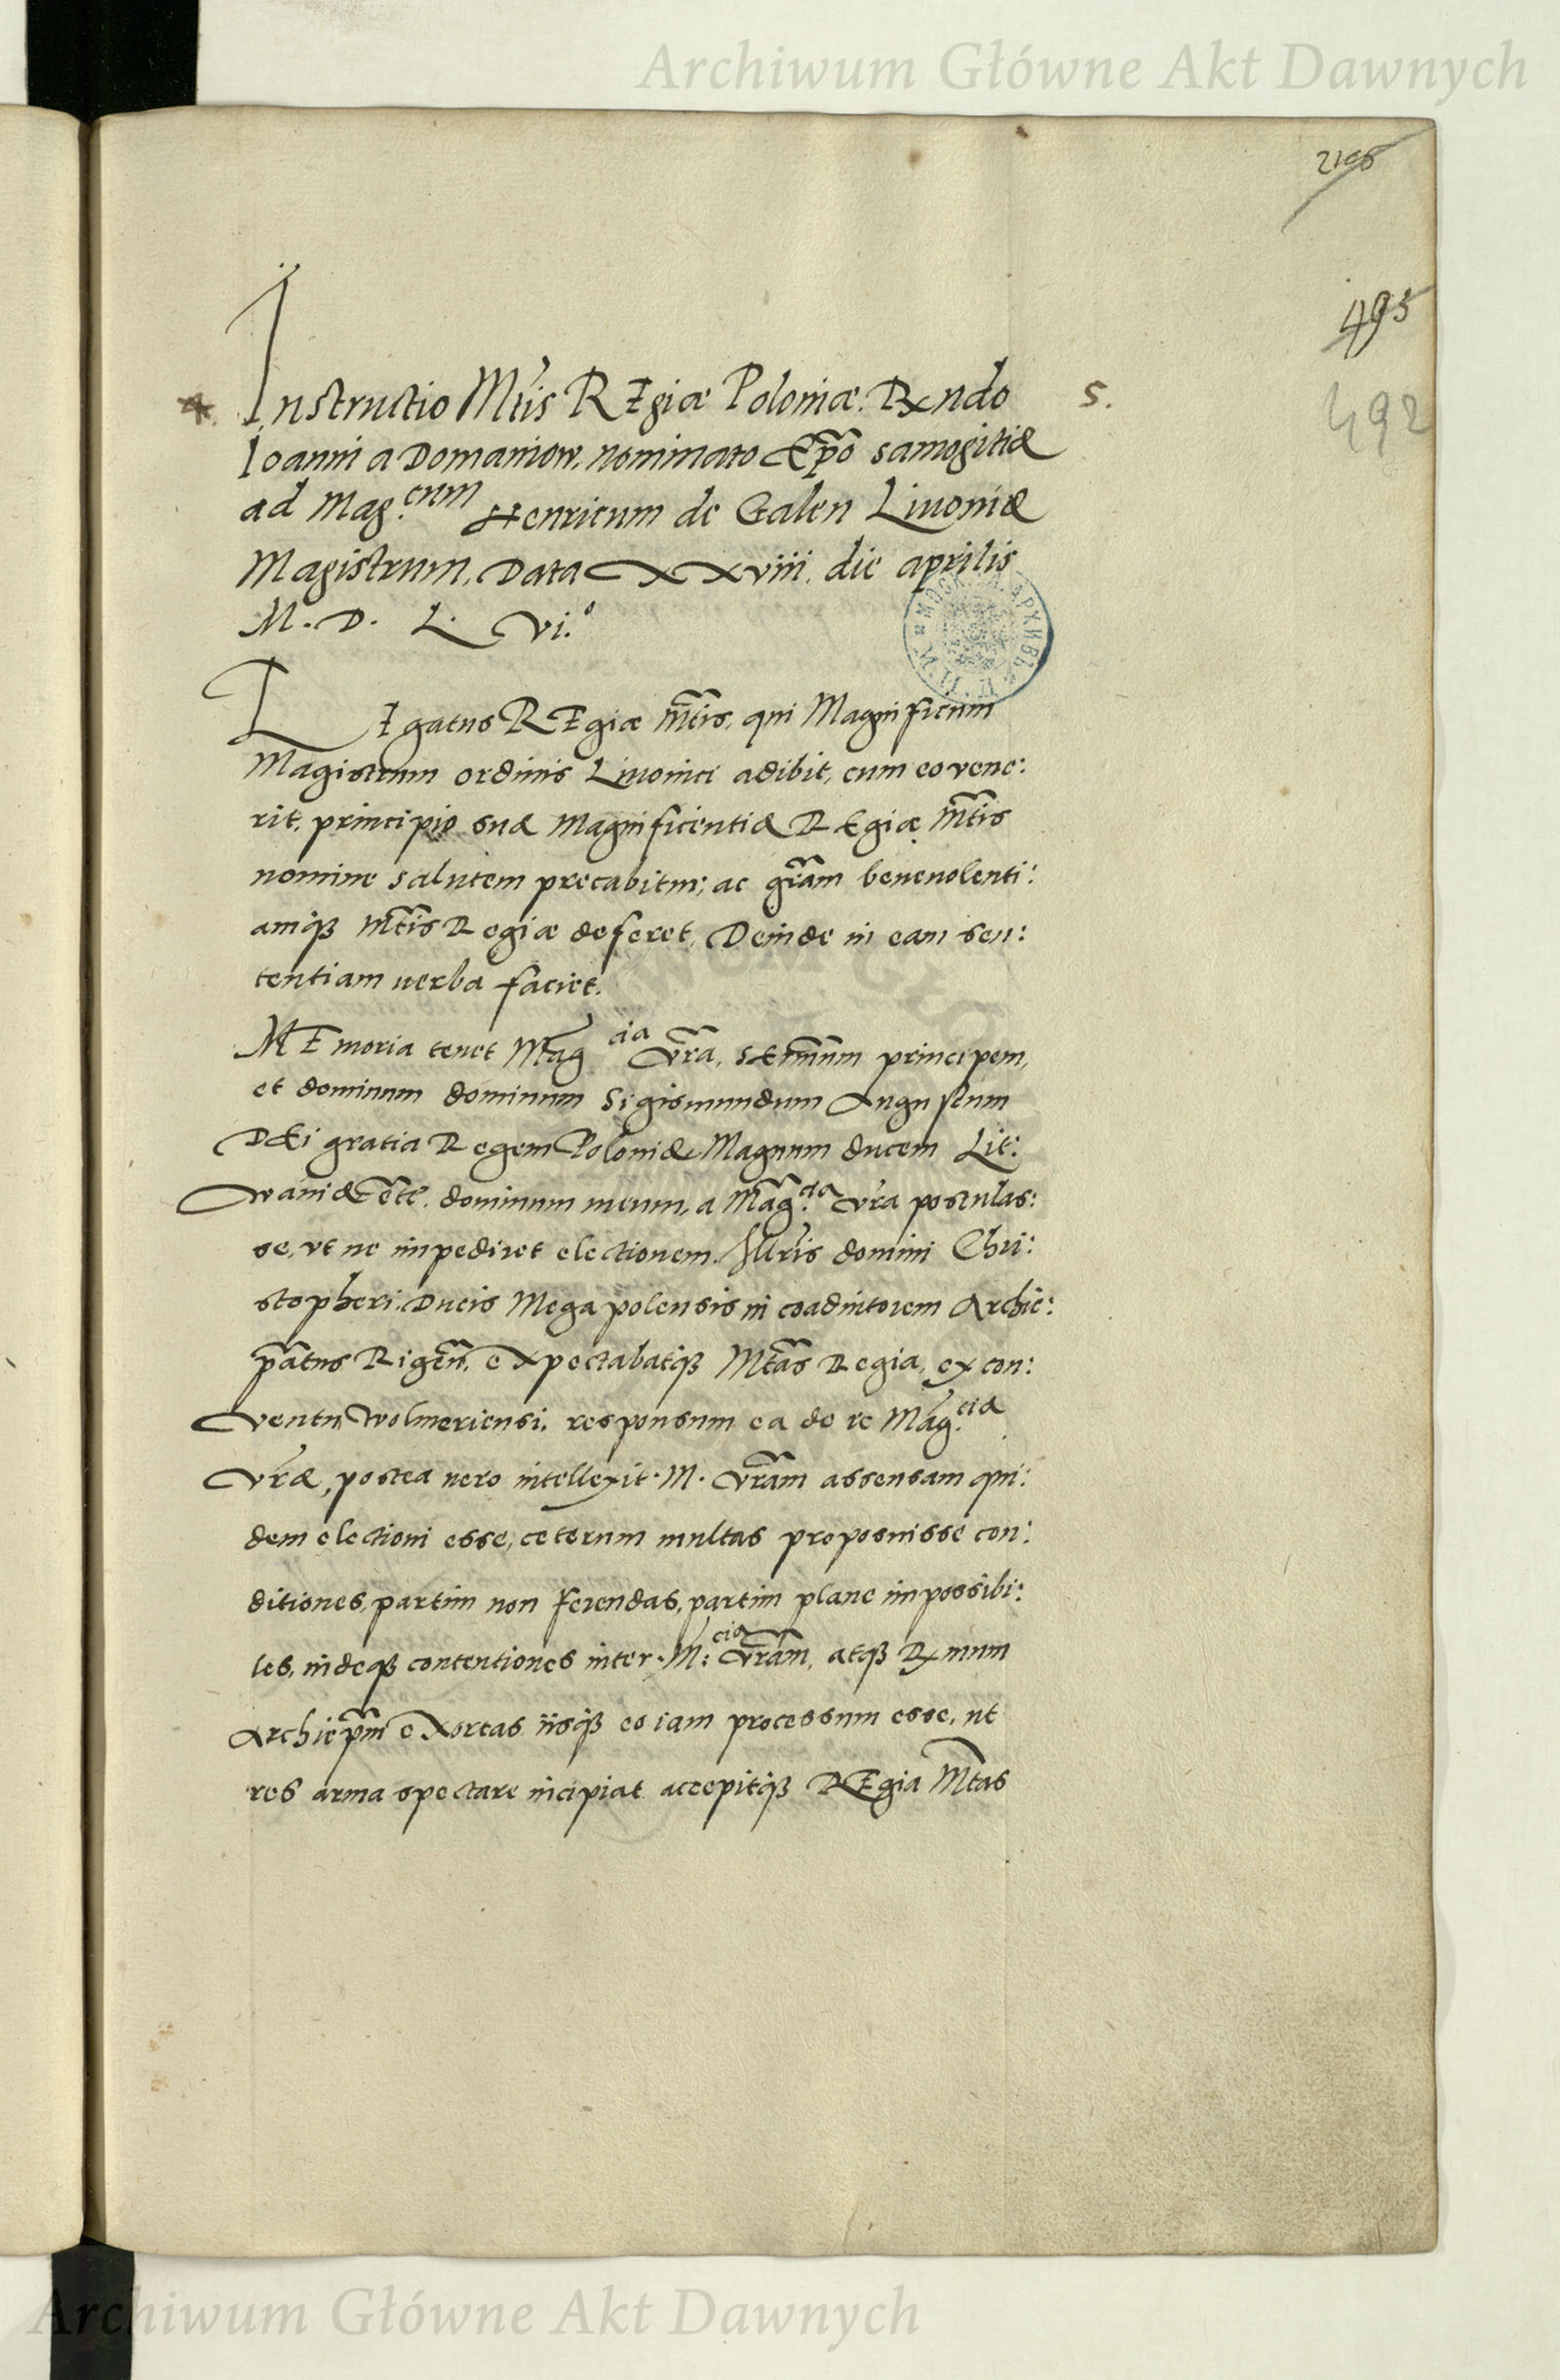 Archiwum Główne Akt Dawnych
2105
493
492
Instructio Mtis REgiæ Poloniæ. Rxndo s.
Ioanni a Domaniow. nominato Epo samogitiæ
ad Mag.cum Henricum de Galen Liuoniæ
Magistrum. Data XXviii. die aprilis
M. D. L. Vi.o
LEgatus REgiæ mtis, qui Magnificum
Magistrum ordinis Liuonici adibit, cum eo vene:
rit, principio suæ Magnificentiæ REgiæ mtis
nomine salutem precabitur; ac gram beneuolenti:
amqȝ Mtis Regiæ deferet. Deinde in eam sen:
tentiam uerba faciet.
MEmoria tenet Mag cia vra, sermum principem,
et dominum dominum Sigismundum Augustum
DEi gratia Regem Poloniæ Magnum ducem Lit:
waniæ etc. dominum meum, a Mag.cia vra postulas:
se, vt ne impediret electionem. Illris domini Chri:
stopheri. Ducis Megapolensis in coadiutorem Archie:
patus Rigen. eXpectabatqȝ Mtas Regia, ex con:
ventu Wolmeriensi. responsum ea de re Mag.cia
Vræ, postea uero intellexit. M. vram assensam qui:
dem electioni esse, ceterum multas proposuisse con:
ditiones, partim non ferendas, partim plane impossibi:
les, indeqȝ contentiones inter. M:cia vram, atqȝ Rxmum
Archiepm eXortas iisqȝ eo iam processum esse, ut
res arma spectare incipiat accepitqȝ REgia Mtas
Archiwum Główne Akt Dawnych